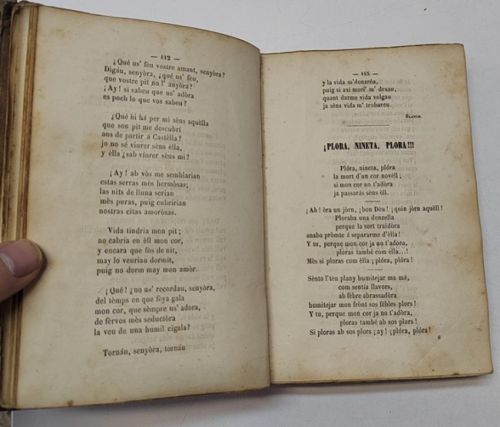 — 112 —
¿Qué us' féu vostre amant, senyòra?
Digáu, senyòra, ¿qué us' féu,
que vostre pit no l' anyòra?
¡Ay! si sabeu que us' adòra
es poch lo que vos sabeu?
¿Qué hi há per mi sèns aquélla
que son pit me descubrí
ans de partir á Castélla?
jo no sé viurer sèns élla,
y élla ¿sab viurer sèns mi?
¡Ay! ab vòs me semblarian
estas serras més hermòsas;
las nits de lluna serian
més puras, puig cubririan
nostras citas amoròsas.
Vida tindria mon pit;
no cabria en éll mon cor,
y encara que fos de nit,
may lo veuriau dormit,
puig no dorm may mon amòr.
¡Qué! ¿no us' recordau, senyòra,
del témps en que féya gala
mon cor, que sémpre us' adora,
de férvos més seductòra
la veu de una humil cigala?
Tornáu, senyòra, tornáu
— 113 —
y la vida m' donaréu,
puig si axí morí m' dexau,
quant darme vida volgau
ja sèns vida m' trobareu.
¡PLÓRA, NINETA, PLORA!!!
Plóra, nineta, plóra
la mort d'un cor novéll;
si mon cor no t'adòra
ja passarás sèns éll.
¡Ab! éra un jòrn, ¡bon Dèu! ¡quin jorn aquéll!
Ploraba una donzella
perque la sort traidòra
anaba promte á separarme d'élla!
Y tu, perque mon cor ja no t'adòra,
ploras també com élla...!
Més si ploras com élla ¡plóra, plóra!
Sènto l'téu plany humitejar ma má,
com sentia llavors,
ab fébre abrassadòra
humitejar mon frònt sos fébles plors!
Y tu, perque mon cor ja no t'adòra,
ploras també ab sos plors!
Si ploras ab sos plors ¡ay! ¡plóra, plóra!